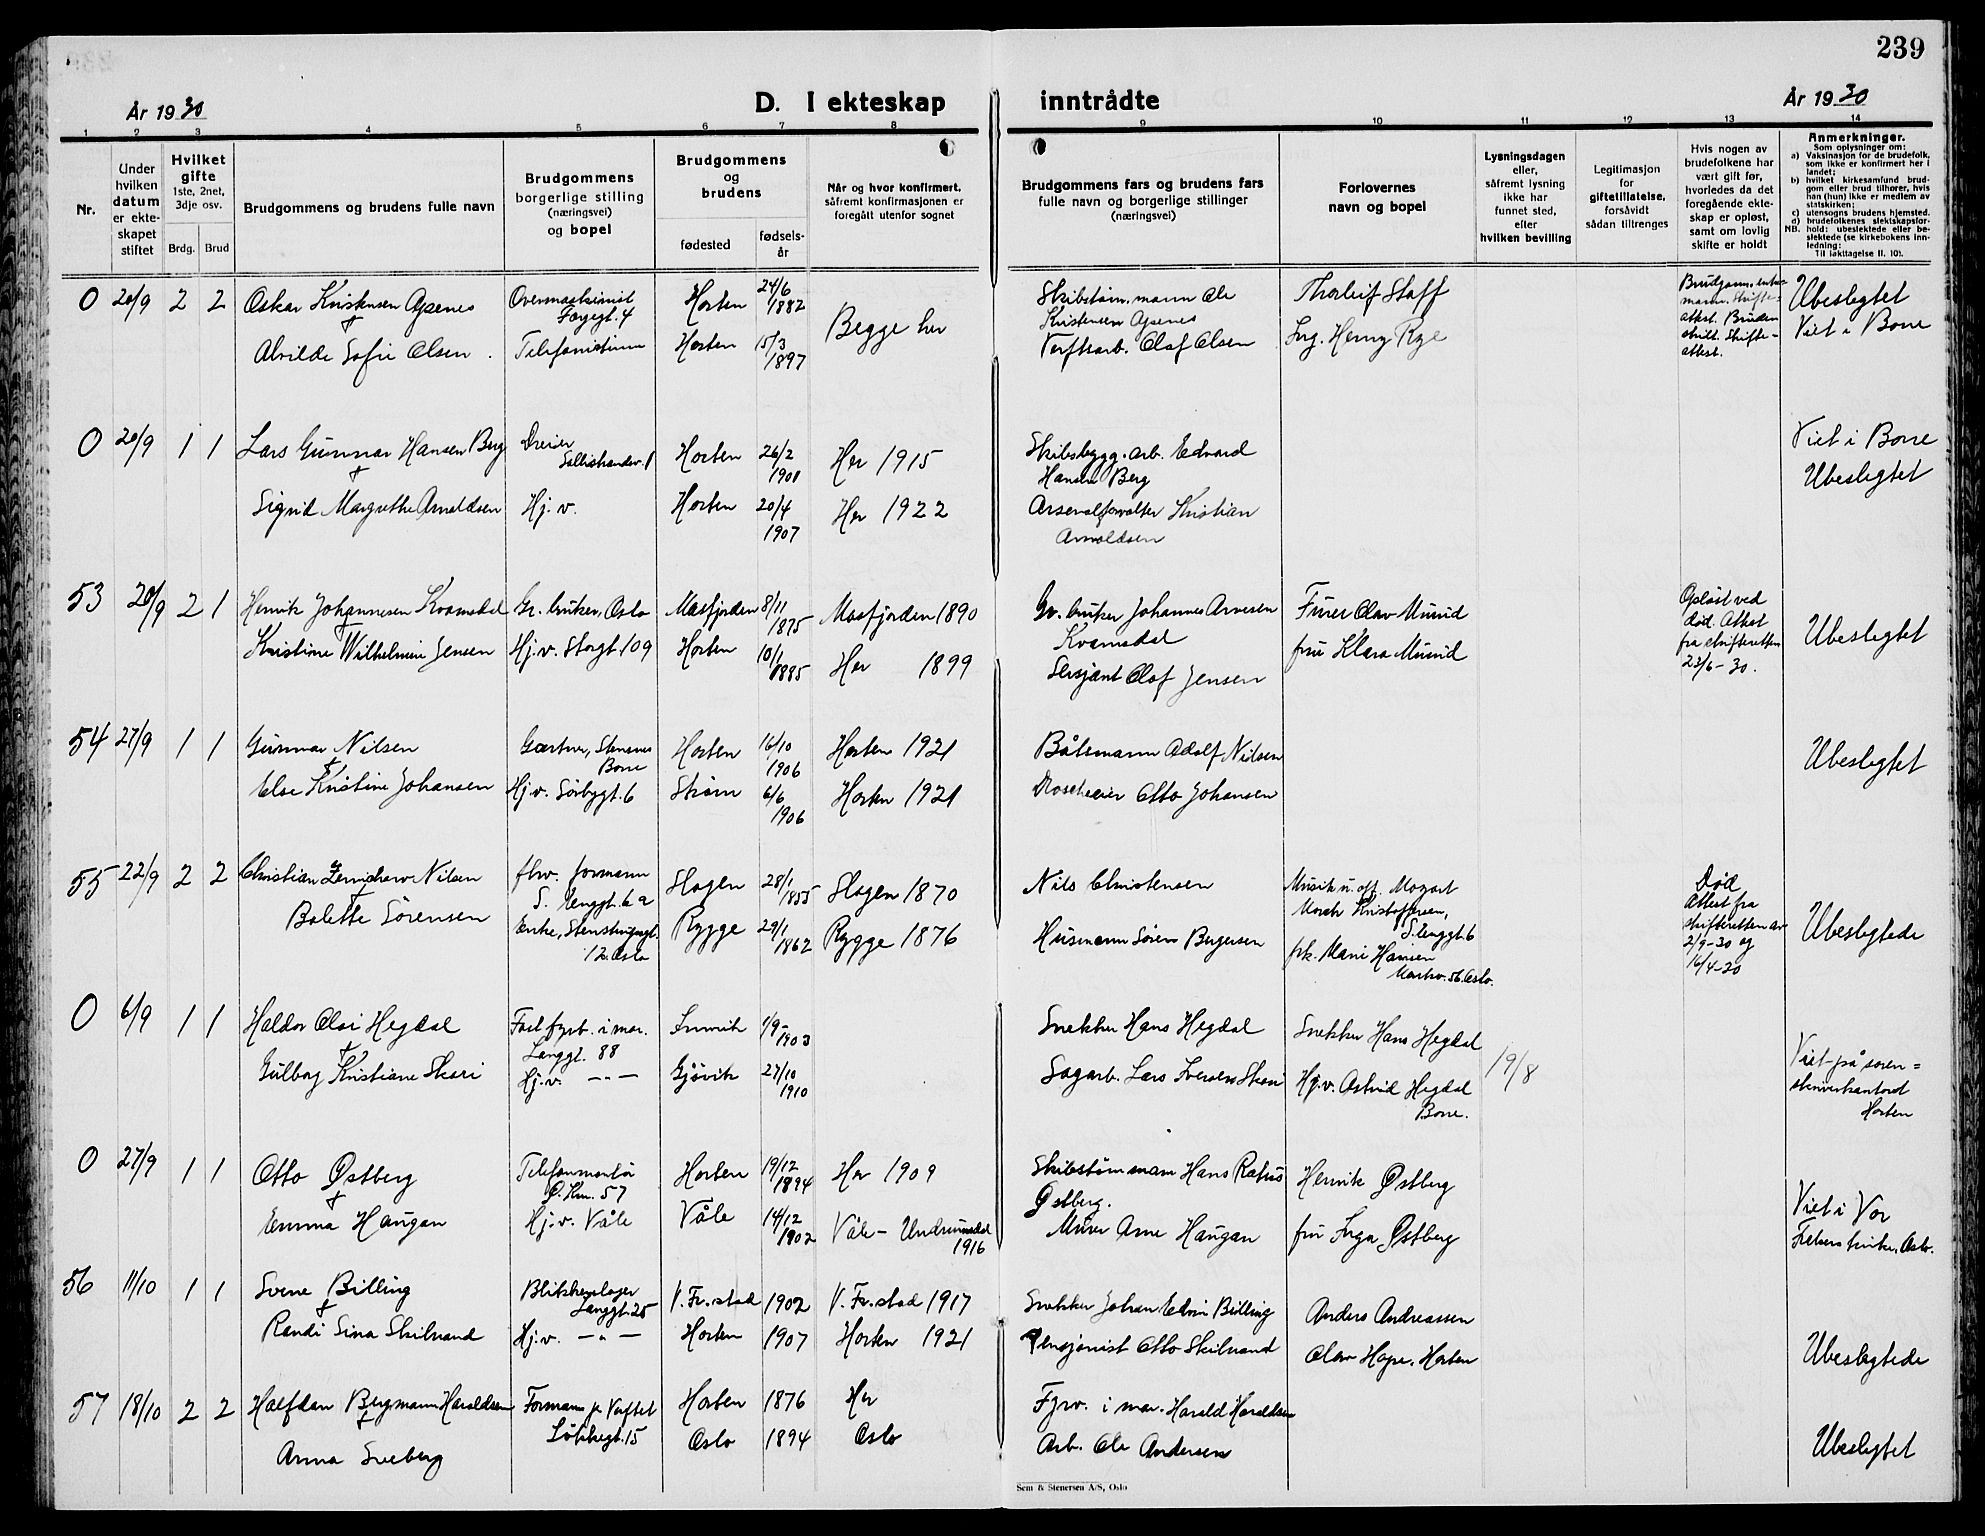 239
År 1930
D. I ekteskap inntrådte
År 1930
1 2 3 4 5 6 7 8 9 10 11 12 13 14
Nr.
Under
hvilken
datum
er ekte-
skapet
stiftet
Hvilket
gifte
1ste, 2net,
3dje osv.
Brdg. Brud
Brudgommens og brudens fulle navn
Brudgommens
borgerlige stilling
(næringsvei)
og bopel
Brudgommens
og
brudens
fødested
fødsels-
år
Når og hvor konfirmert,
såfremt konfirmasjonen er
foregått utenfor sognet
Brudgommens fars og brudens fars
fulle navn og borgerlige stillinger
(næringsvei)
Forlovernes
navn og bopel
Lysningsdagen
eller,
såfremt lysning
ikke har
funnet sted,
efter
hvilken bevilling
Legitimasjon
for
giftetillatelse,
forsåvidt
sådan tiltrenges
Hvis nogen av
brudefolkene har
vært gift før,
hvorledes da det
foregående ekte-
skap er opløst,
samt om lovlig
skifte er holdt
Anmerkninger.
Som oplysninger om:
a) Vaksinasjon for de brudefolk,
som ikke er konfirmert her i
landet;
b) hvilket kirkesamfund brud-
gom eller brud tilhører, hvis
han (hun) ikke er medlem av
statskirken;
c) utensogns brudens hjemsted.
d) brudefolkenes slektskapsfor-
NB. hold: ubeslektede eller be-
slektede (se kirkebokens inn-
ledning:
Til iakttagelse II. 10).
0 20/9 2 2 Oskar Kristensen Agsenes
Overmaskinist
Færgegt. 4
Horten 24/6 1882
Alvilde Sofie Olsen
Telefonistinne
Horten 15/3 1897
Begge her
Skibstøm. mann Ole
Kristensen Agsenes
Verftsarb. Olaf Olsen
Thorleif Staff
Ing. Henry Rye
Brudgom. enke-
mann. Skifte-
attest. Bruden
skilt. Skifte-
attest.
Ubeslegtet
Viet i Borre
0 20/9 1 1 Lars Gunnar Hansen Berg
Dreier
Horten 26/2
Her 1915
Sigrid Margrethe Arnoldsen
Hj. v.
Horten 20/4 1907
Her 1922
Skibsbygg. arb. Edvard
Hansen Berg
Arsenalforvalter Kristian
Arnoldsen
Viet i Borre
Ubeslegtet
53 20/9 2 1 Henrik Johannesen Kvamsdal
Gr. bruker, Oslo
Masfjorden 8/11 1875
Masfjorden 1890
Kristine Wilhelmine Jensen
Hj. v. Storgt. 109
Horten 10/1 1885
Her 1899
Gr. bruker Johannes Arnesen
Kvamsdal
Sersjant Olaf Jensen
Furer Olav Musid
fru Klara Musid
Opløst ved
død. Attest
fra skifteretten
23/6-30.
Ubeslegtet
54 27/9 1 1 Gunnar Nilsen
Gartner, Stensnes
Borre
Horten 16/10 1906
Horten 1921
Else Kristine Johansen
Hj. v. Sørbygt. 6
Strøm 6/6 1906
Horten 1921
Båtsmann Adolf Nilsen
Otto Johansen
Ubeslegtet
55 22/9 2 2 Christian Nilsen
fhv. formann
S. Lenggt. 6a
Slagen 28/1 1855
Slagen 1870
Bolette Sørensen
Enke,
12. Oslo
Rygge 29/1 1862
Rygge 1876
Nils Christensen
Husmann Søren Bergersen
Musik u. off. Mozart
Kristoffersen,
S. Lenggt. 6
frk. Marie Hansen
56. Oslo.
Død
Attest fra
skifteretten av
2/9-30 og
16/4-30
Ubeslegtede
0 6/9 1 1 Haldor Olai Hegdal
Fast fyrb. i mar.
Langgt. 88
Innvik 1/9-1903
Gulborg Kristiane Skari
Hj. v. — " —
Gjøvik 27/10 1910
Snekker Hans Hegdal
Sagarb. Lars Iversen Skari
Snekker Hans Hegdal
Hj. v. Astrid Hegdal
Borre.
19/8
Viet på soren=
skriverkontoret
Horten
0 27/9 1 1 Otto Østberg
Telefonmontør
57
Horten 19/12 1894
Her 1909
Emma Haugan
Hj. v. Våle
Våle 14/12 1902
Våle - Undrumsdal
1916
Skibstømmann Hans
Østberg.
Murer Arne Haugan
Henrik Østberg
fru Inga Østberg
Viet i Vor
Frelsers kirke, Oslo.
56 11/10 1 1 Sverre Billing
Blikkenslager
Langgt. 25
V. Fr.stad 1902
V. Fr.stad 1917
Randi Sina Skilvand
Hj. v. — " —
Horten 1907
Horten 1921
Snekker Johan Edvin Billing
Pensjonist Otto Skilvand
Anders Andreassen
Olav Hope, Horten
Ubeslegtede
57 18/10 2 2 Halfdan Bergmann Haraldsen
Formann p. Verftet
Løkkegt. 15
Horten 1876
Her
Anna Sveberg
Oslo 1894
Oslo
Fyrv. i mar. Harald Haraldsen
Arb. Ole Andersen
Ubeslegtet
Sem & Stenersen A/S, Oslo